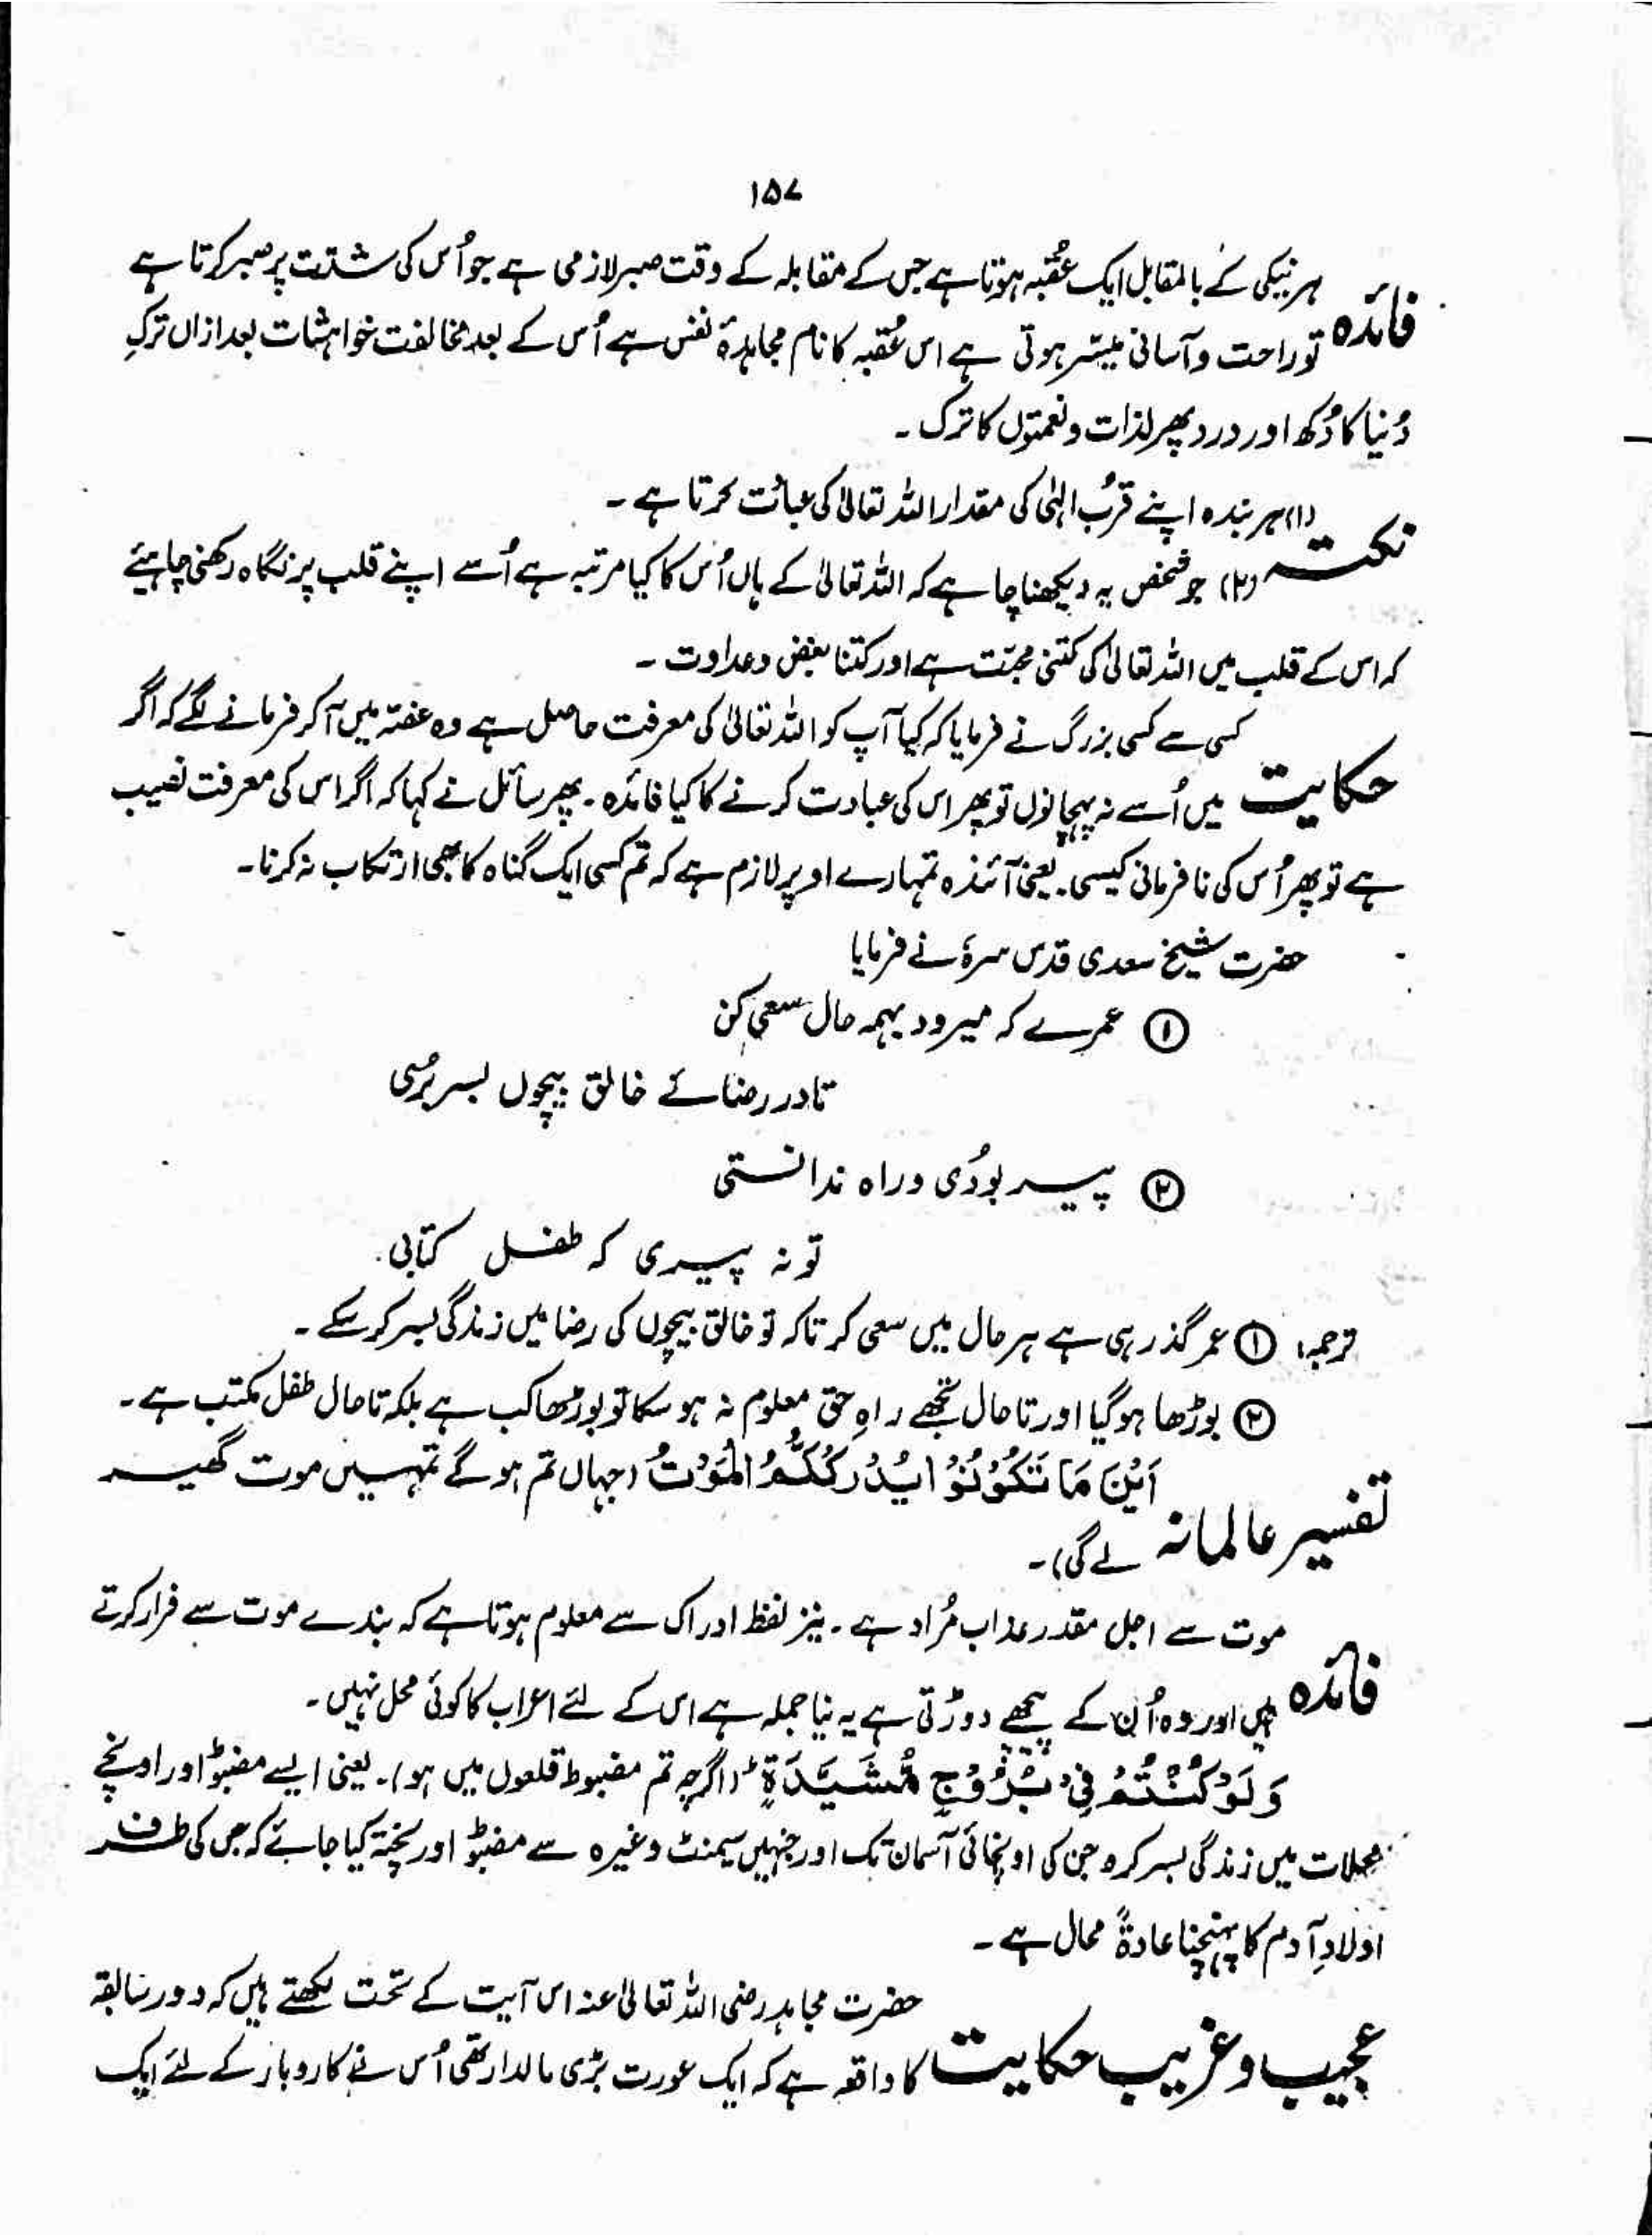 ۱۵۷
ہر نیکی کے بالمقابل ایک عُقبہ ہوتا ہے جس کے مقابلہ کے وقت صبر لازمی ہے جو اُس کی شدّت پر صبر کرتا ہے
فائدہ تو راحت و آسانی میسّر ہوتی ہے اس عُقبہ کا نام مجاہدۂ نفس ہے اُس کے بعد مخالفت خواہشات بعد ازاں ترکِ
دُنیا کا دُکھ اور درد پھر لذات و نعمتوں کا ترک ۔
(۱) ہر بندہ اپنے قربِ الٰہی کی مقدار اللہ تعالیٰ کی عبادت کرتا ہے ۔
نکتہ (۲) جو شخص یہ دیکھنا چاہے کہ اللہ تعالیٰ کے ہاں اُس کا کیا مرتبہ ہے اُسے اپنے قلب پر نگاہ رکھنی چاہیئے
کہ اس کے قلب میں اللہ تعالیٰ کی کتنی محبّت ہے اور کتنا بغض و عداوت ۔
کسی سے کسی بزرگ نے فرمایا کہ کیا آپ کو اللہ تعالیٰ کی معرفت حاصل ہے وہ غصّہ میں آ کر فرمانے لگے کہ اگر
حکایت میں اُسے نہ پہچانوں تو پھر اس کی عبادت کرنے کا کیا فائدہ ۔ پھر سائل نے کہا کہ اگر اس کی معرفت نصیب
ہے تو پھر اُس کی نافرمانی کیسی ۔ یعنی آئندہ تمہارے اوپر لازم ہے کہ تم کسی ایک گناہ کا بھی ارتکاب نہ کرنا ۔
حضرت شیخ سعدی قدس سرہٗ نے فرمایا
① عمرے کہ میرود بہمہ حال سعی کن
تا در رضائے خالق بیچوں بسر بُری
② پیر بودُی و راہ ندانستی
تو نہ پیری کہ طفل کتابی ۔
ترجمہ: ① عمر گذر رہی ہے ہر حال میں سعی کر تاکہ تو خالق بیچوں کی رضا میں زندگی بسر کر سکے ۔
② بوڑھا ہو گیا اور تا حال تجھے راہِ حق معلوم نہ ہو سکا تو بوڑھا کب ہے بلکہ تا حال طفل مکتب ہے ۔
اَیْنَ مَا تَکُوْنُوْا یُدْرِکْکُّمُ الْمَوْتُ (جہاں تم ہو گے تمہیں موت گھیر
تفسیر عالمانہ لے گی) ۔
موت سے اجل مقدر عذاب مُراد ہے ۔ نیز لفظ ادراک سے معلوم ہوتا ہے کہ بندے موت سے فرار کرتے
فائدہ ہیں اور وہ اُن کے پیچھے دوڑتی ہے یہ نیا جملہ ہے اس کے لئے اعراب کا کوئی محل نہیں ۔
وَلَوْ کُنْتُمْ فِیْ بُرُوْجٍ مُّشَیَّدَۃٍ ط (اگرچہ تم مضبوط قلعوں میں ہو) ۔ یعنی ایسے مضبوط اور اونچے
محلات میں زندگی بسر کرو جن کی اونچائی آسمان تک اور جنہیں سیمنٹ وغیرہ سے مضبوط اور پختہ کیا جائے کہ جس کی طرف
اولادِ آدم کا پہنچنا عادۃً محال ہے ۔
حضرت مجاہد رضی اللہ تعالیٰ عنہ اس آیت کے تحت لکھتے ہیں کہ دور سابقہ
عجیب و غریب حکایت کا واقعہ ہے کہ ایک عورت بڑی مالدار تھی اُس نے کاروبار کے لئے ایک